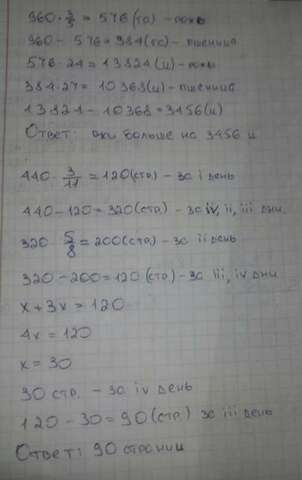 960 · 3/5 = 576 (га) - рожь
960 - 576 = 384 (га) - пшеница
576 · 24 = 13824 (ц) - рожь
384 · 27 = 10368 (ц) - пшеница
13824 - 10368 = 3456 (ц)
Ответ: ржи больше на 3456 ц
440 · 3/11 = 120 (стр.) - за i день
440 - 120 = 320 (стр.) - за iv, ii, iii дни
320 · 5/8 = 200 (стр.) - за ii день
320 - 200 = 120 (стр.) - за iii, iv дни
x + 3x = 120
4x = 120
x = 30
30 стр. - за iv день
120 - 30 = 90 (стр.) за iii день
Ответ: 90 страниц